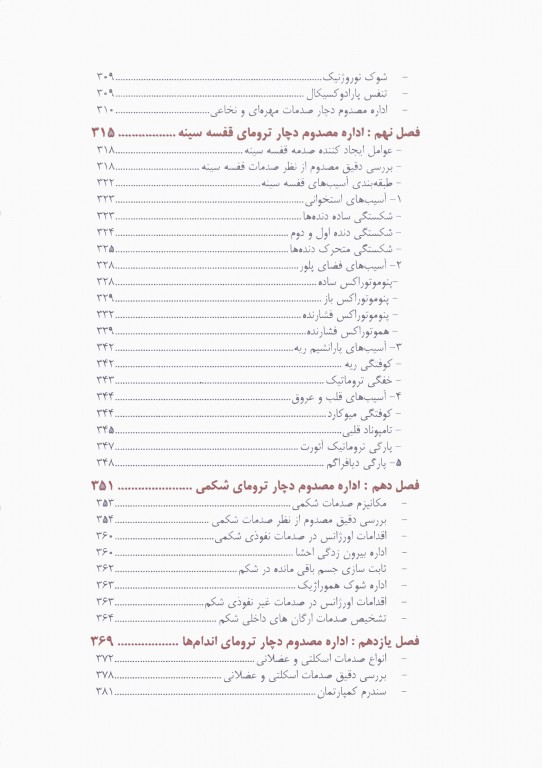 - شوک نوروژنیک................................................................................۳۰۹
- تنفس پارادوکسیکال ..........................................................................۳۰۹
- اداره مصدوم دچار صدمات مهره‌ای و نخاعی.....................................۳۱۰
فصل نهم : اداره مصدوم دچار ترومای قفسه سینه ................. ۳۱۵
- عوامل ایجاد کننده صدمه قفسه سینه ..................................................۳۱۸
- بررسی دقیق مصدوم از نظر صدمات قفسه سینه .................................۳۱۸
- طبقه‌بندی آسیب‌های قفسه سینه.........................................................۳۲۲
۱- آسیب‌های استخوانی.........................................................................۳۲۳
- شکستگی ساده دنده‌ها........................................................................۳۲۳
- شکستگی دنده اول و دوم ...................................................................۳۲۴
- شکستگی متحرک دنده‌ها....................................................................۳۲۵
۲- آسیب‌های فضای پلور........................................................................۳۲۸
-پنوموتوراکس ساده..............................................................................۳۲۸
- پنوموتوراکس باز ................................................................................۳۲۹
- پنوموتوراکس فشارنده.........................................................................۳۳۲
- هموتوراکس فشارنده...........................................................................۳۳۹
۳- آسیب‌های پارانشیم ریه......................................................................۳۴۲
- کوفتگی ریه ........................................................................................۳۴۲
- خفگی تروماتیک .................................................................................۳۴۳
۴- آسیب‌های قلب و عروق.....................................................................۳۴۴
- کوفتگی میوکارد..................................................................................۳۴۴
- تامپوناد قلبی........................................................................................۳۴۵
- پارگی تروماتیک آئورت .......................................................................۳۴۷
۵- پارگی دیافراگم ..................................................................................۳۴۸
فصل دهم : اداره مصدوم دچار ترومای شکمی ...................... ۳۵۱
- مکانیزم صدمات شکمی .....................................................................۳۵۳
- بررسی دقیق مصدوم از نظر صدمات شکمی .....................................۳۵۴
- اقدامات اورژانس در صدمات نفوذی شکمی.......................................۳۶۰
- اداره بیرون زدگی احشا ......................................................................۳۶۰
- ثابت سازی جسم باقی مانده در شکم ................................................۳۶۲
- اداره شوک هموراژیک ........................................................................۳۶۳
- اقدامات اورژانس در صدمات غیر نفوذی شکم...................................۳۶۳
- تشخیص صدمات ارگان های داخلی شکم .........................................۳۶۴
فصل یازدهم : اداره مصدوم دچار ترومای اندام‌ها .................. ۳۶۹
- انواع صدمات اسکلتی و عضلانی .......................................................۳۷۲
- بررسی دقیق صدمات اسکلتی و عضلانی ..........................................۳۷۸
- سندرم کمپارتمان...............................................................................۳۸۱